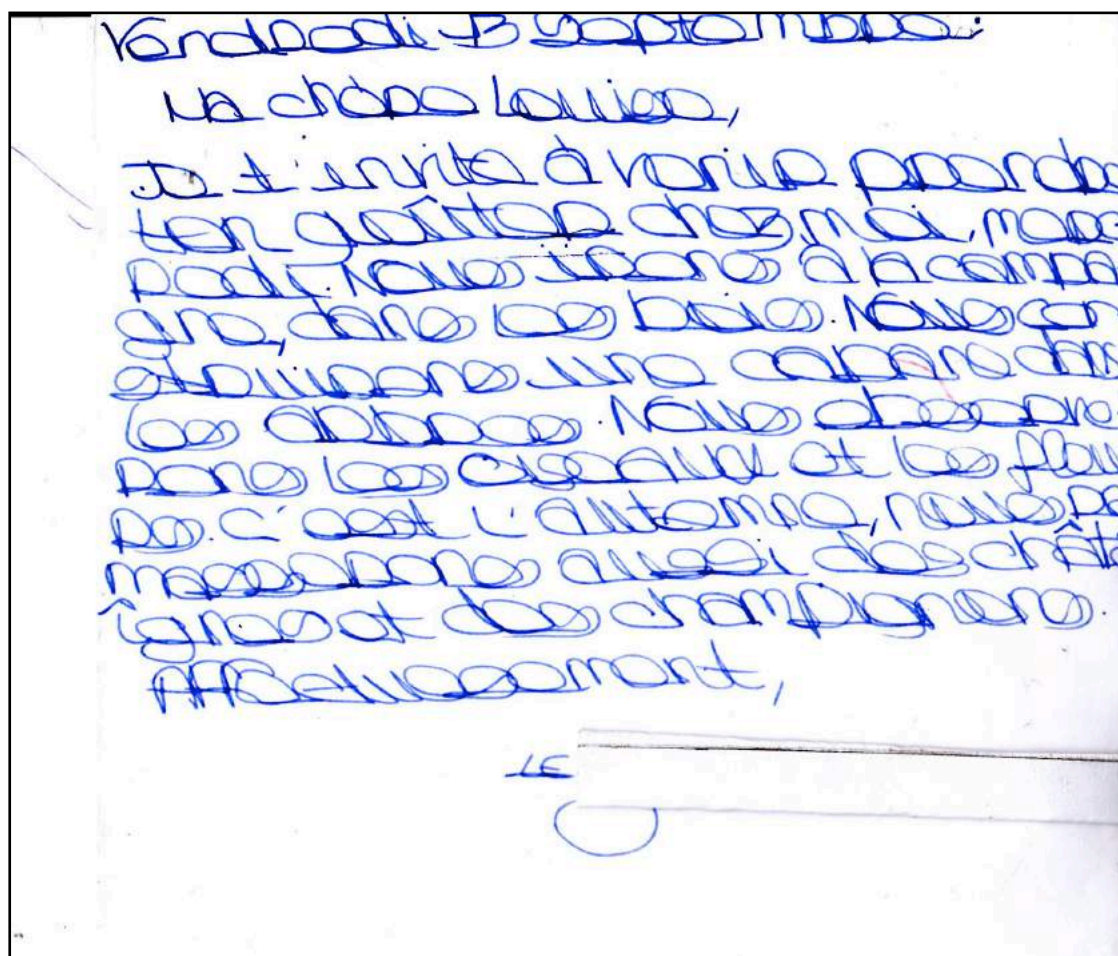 Vendredi 13 Septembre.
Ma chère Louise,
Je t'invite à venir prendre
ton goûter chez moi, merc
redi. Nous irons à la campa
gne, dans les bois. Nous con
struirons une cabane dans
les arbres. Nous observe
rons les oiseaux et les fleu
rs. C'est l'automne, nous ra
masserons aussi des châta
îgnes et des champignons.
Affectueusement,
LE